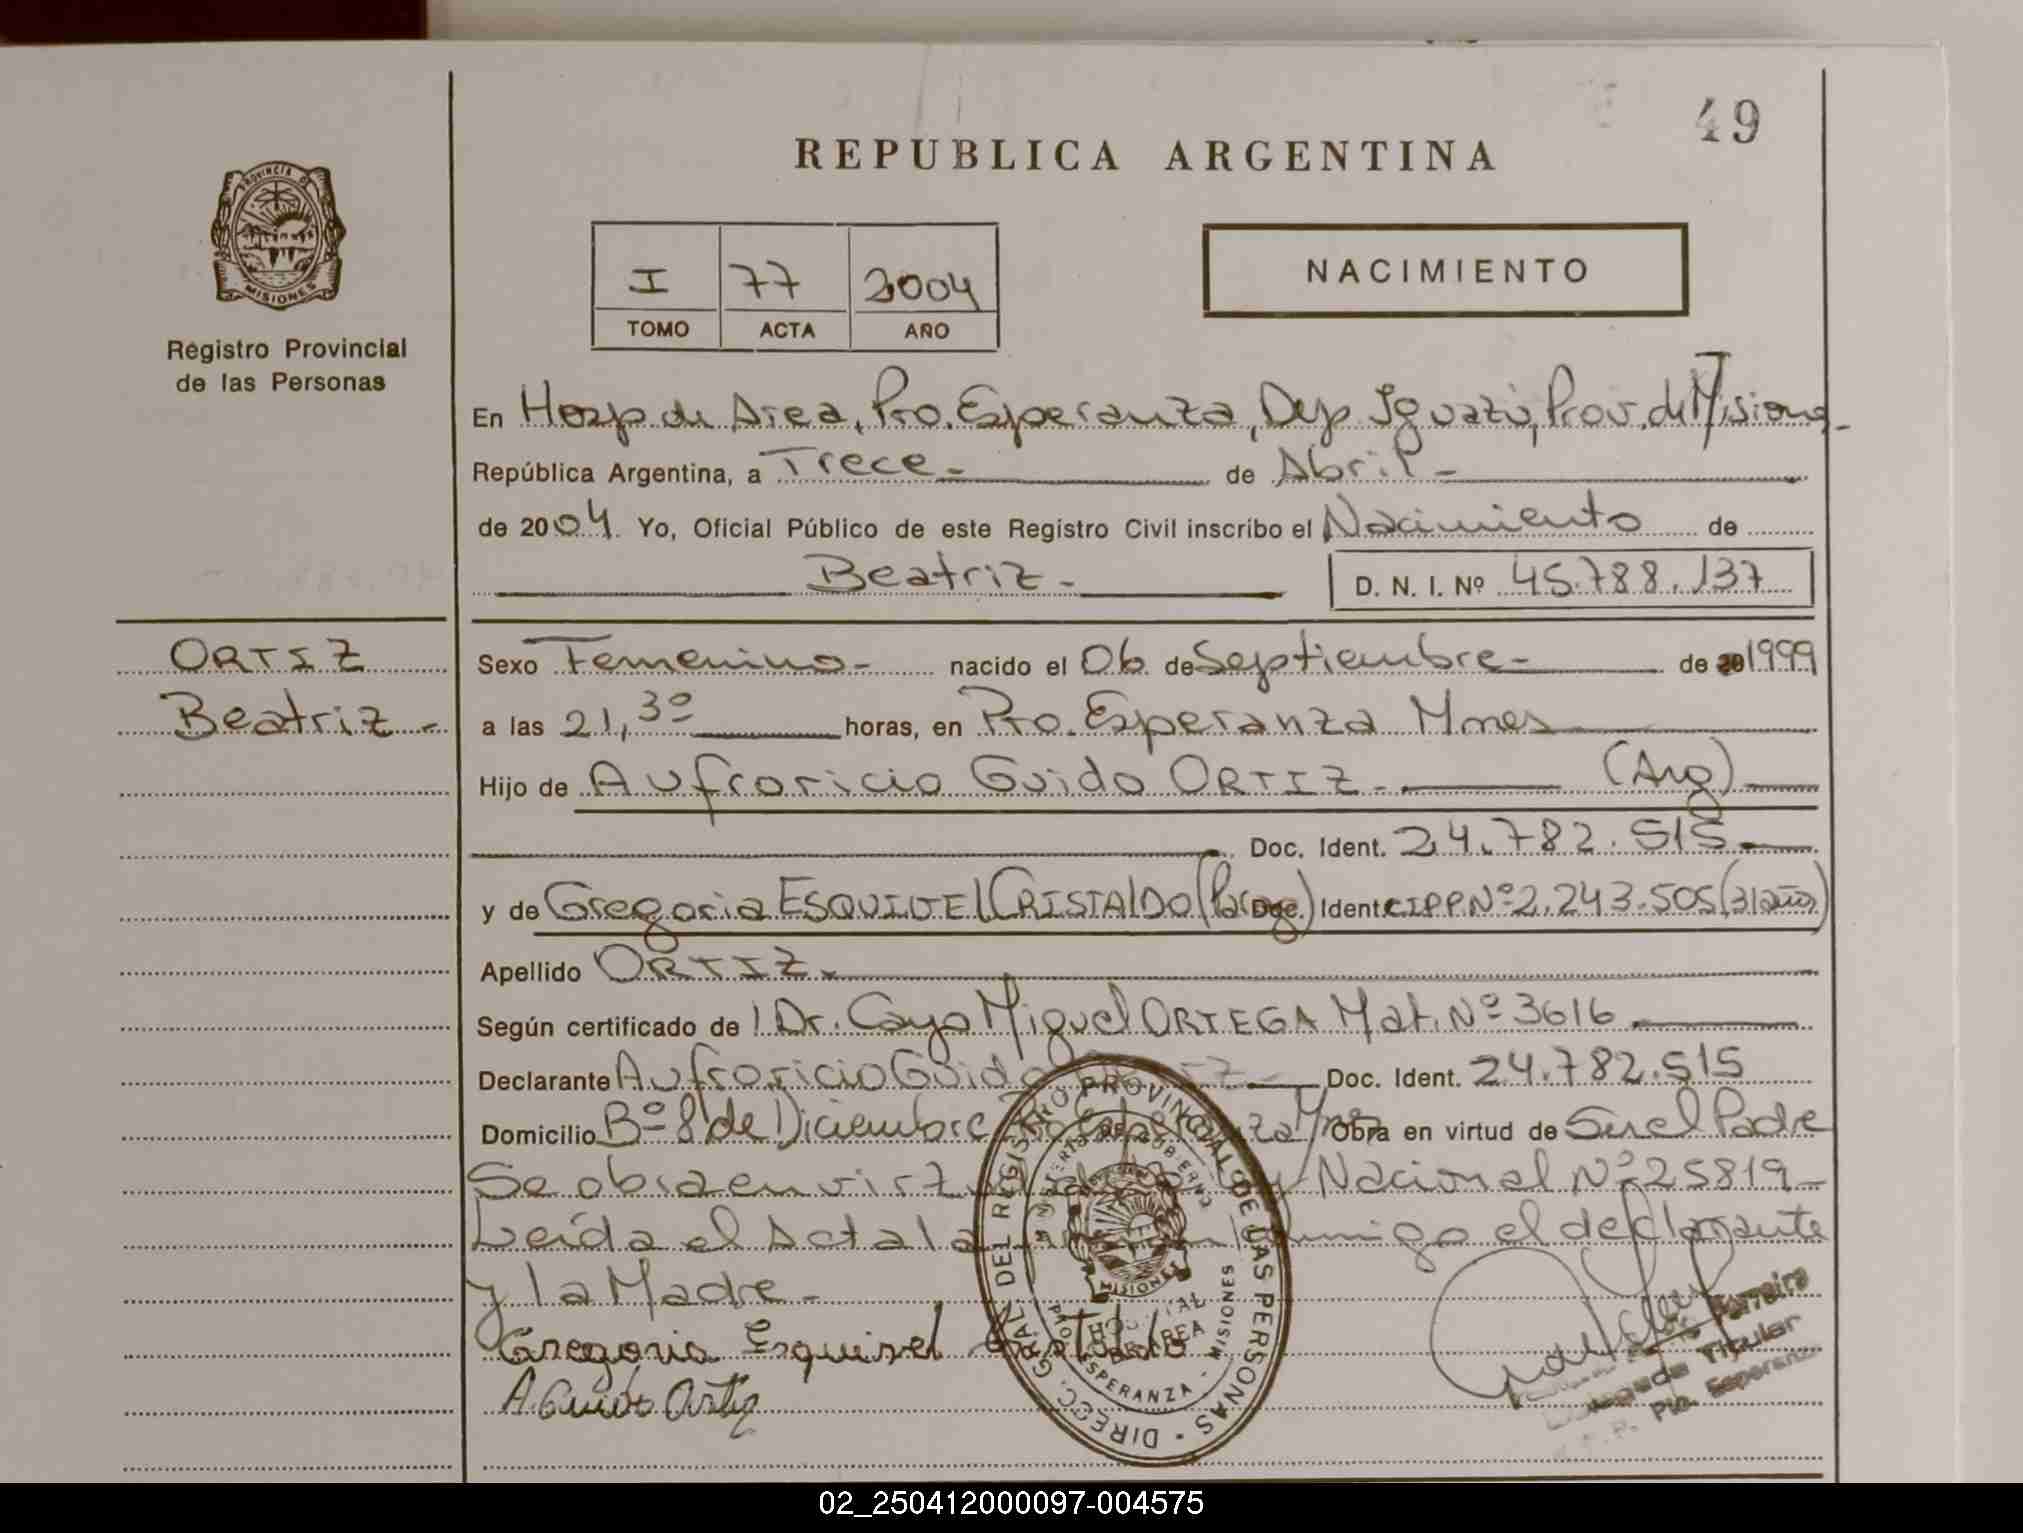 49
REPUBLICA ARGENTINA
PROVINCIA DE
MISIONES
Registro Provincial
de las Personas
I 77 2004
TOMO ACTA AÑO
NACIMIENTO
En Hosp. de Area, Pto. Esperanza, Dep. Iguazú, Prov. de Misiones
República Argentina, a Trece de Abril
de 2004. Yo, Oficial Público de este Registro Civil inscribo el Nacimiento de
Beatriz D. N. I. Nº 45.788.137
ORTIZ
Beatriz
Sexo Femenino nacido el 06 de Septiembre de 1999
a las 21,30 horas, en Pto. Esperanza Mnes
Hijo de Aufroricio Guido ORTIZ (Arg)
Doc. Ident. 24.782.515
y de Gregoria ESQUIVEL CRISTALDO (Parag) Doc. Ident CIPP.Nº 2.243.505 (31 años)
Apellido ORTIZ
Según certificado de l Dr. Cayo Miguel ORTEGA Mat. Nº 3616
Declarante Aufroricio Guido Doc. Ident. 24.782.515
Domicilio Bº 8 de Diciembre Mnes Obra en virtud de Ser el Padre
Se obra en Nacional Nº 25819
Leída el Acta la el declarante
y la Madre
Gregoria Esquivel Cristaldo
A. Guido Ortiz
DIRECC. GRAL. DEL REGISTRO PROVINCIAL DE LAS PERSONAS
MINISTERIO DE GOBIERNO
MISIONES
HOSPITAL
DE AREA
PTO. ESPERANZA - MISIONES
Ferreira
Delegada Titular
Pto. Esperanza
02_250412000097-004575